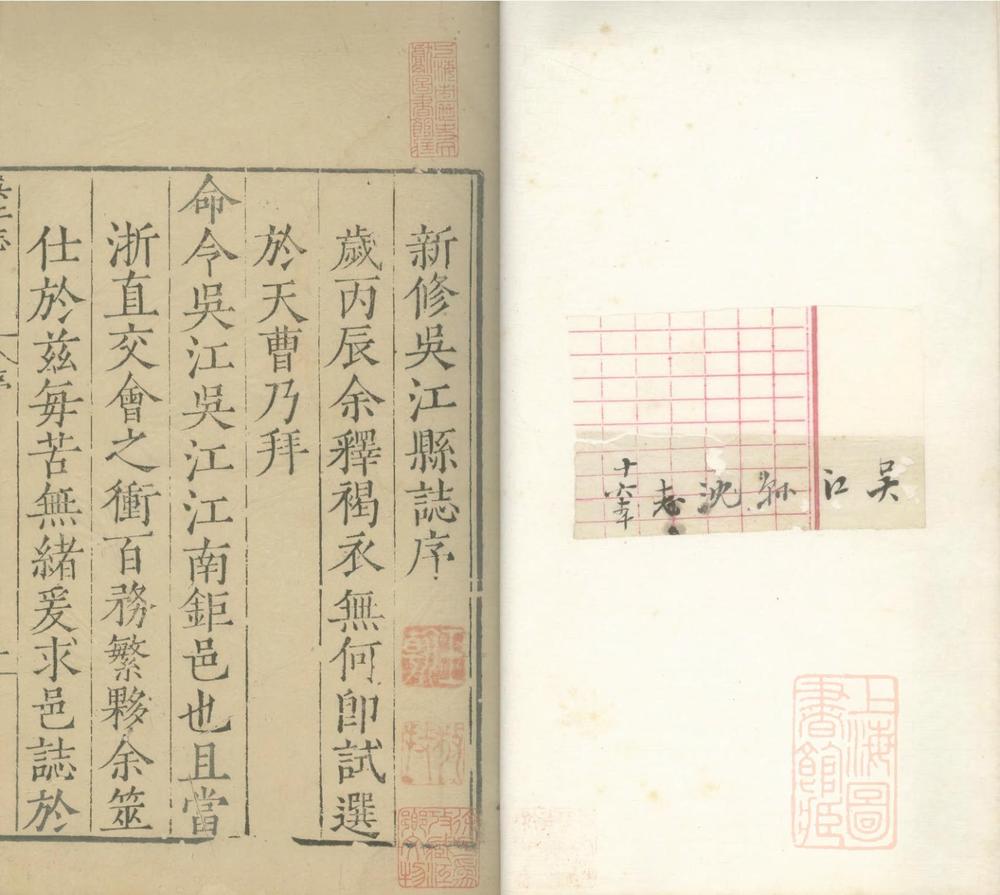 吳江縣沈志
十六年
上海圖書館藏
上海市歷史文獻圖書館藏
新修吳江縣誌序
歲丙辰余釋褐衣無何卽試選
於天曹乃拜
命令吳江吳江江南鉅邑也且當
浙直交會之衝百務繁夥余筮
仕於兹每苦無緒爰求邑誌於